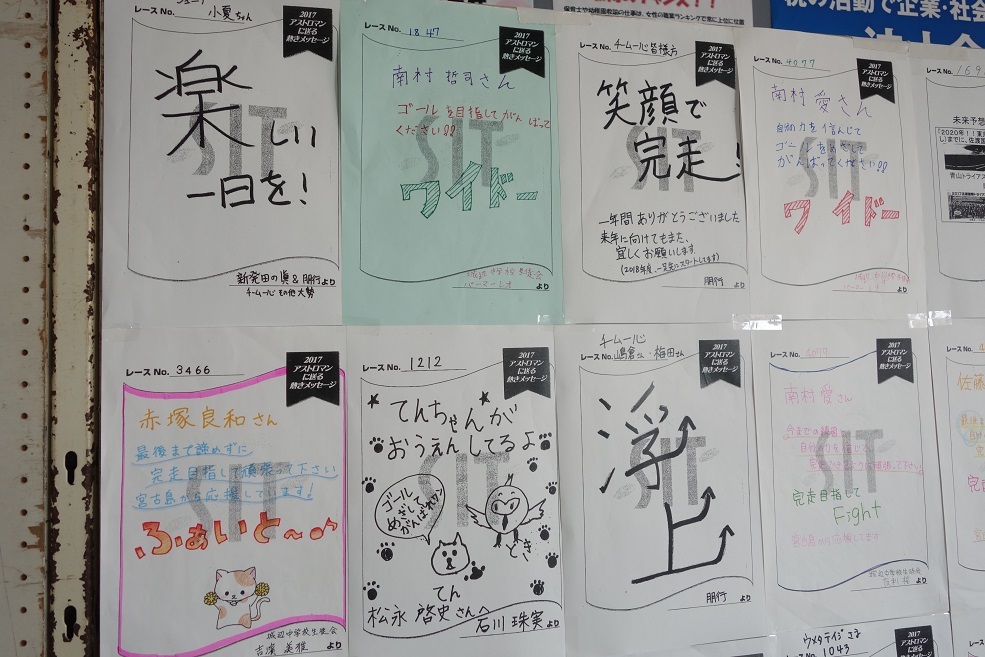 レース No.
小夏ちゃん
2017
アストロマン
に送る
熱きメッセージ
SIT
楽しい
一日を!
新発田の眞 & 朋行より
チームー心 その他大勢
レース No. 1847
2017
アストロマン
に送る
熱きメッセージ
南村 哲司さん
ゴールを目指してがんばって
ください!!
SIT
ワイドー
より
レース No. チームー心 皆様方
2017
アストロマン
に送る
熱きメッセージ
笑顔で
完走!
SIT
一年間ありがとうございました
来年に向けてもまた、
宜しくお願いします
朋行 より
レース No. 4077
2017
アストロマン
に送る
熱きメッセージ
南村 愛さん
自分の力を信んじて
ゴールをめざして
がんばってください!!
SIT
ワイドー
より
レース No. 169
未来予想
青山トライアス
レース No. 3466
2017
アストロマン
に送る
熱きメッセージ
赤塚良和さん
最後まで諦めずに
完走目指して頑張って下さい
宮古島から応援しています!
SIT
ふぁいと〜♪
城辺中学校生徒会
吉濱 美雅 より
レース No. 1212
2017
アストロマン
に送る
熱きメッセージ
てんちゃんが
おうえんしてるよ
SIT
ゴール
めざして
がんばれワン
どきん
てん
松永 啓史さんへ
石川 珠実 より
チームー心
レース No. 嶋倉さん・梅田さん
2017
アストロマン
に送る
熱きメッセージ
浮上
SIT
朋行 より
レース No. 4077
2017
アストロマン
に送る
熱きメッセージ
南村 愛さん
SIT
完走目指して
Fight
宮古島から応援してます
城辺中学校生徒会
より
レース No.
佐藤
ウメタテイジさま
レース No. 1043
2017
アストロマン
に送る